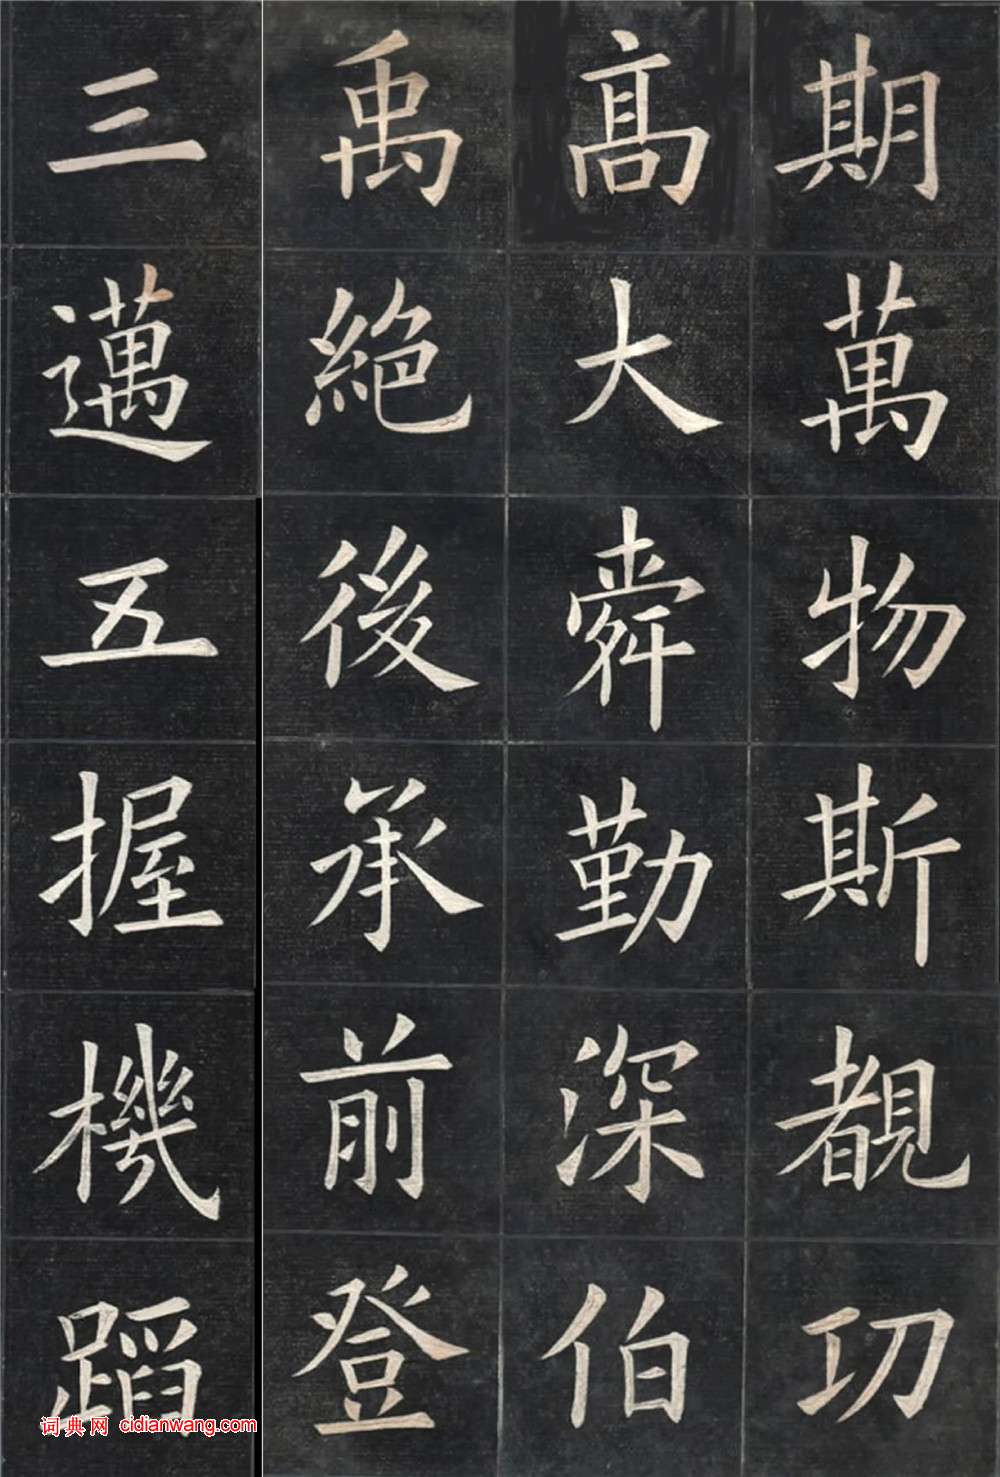 期萬物斯覩功
高大舜勤深伯
禹絶後承前登
三邁五握機蹈
词典网 cidianwang.com